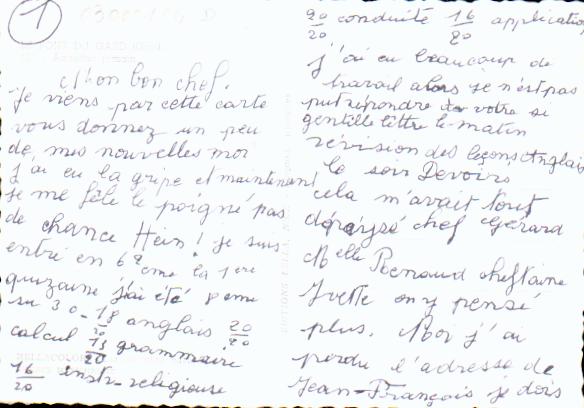 1
Mon bon chef.
Je viens par cette carte
vous donnez un peu
de mes nouvelles moi
j'ai eu la gripe et maintenant
je me fêle le poigné pas
de chance Hein! je suis
entré en 6e eme la 1ere
quizaine j'ai été 8 eme
su 30 - 18/20 anglais 20/20
calcul 13/20 grammaire
16/20 instr-religieuse
20/20 conduite 16/20 application
j'ai eu beaucoup de
travail alors je n'est pas
put répondre à votre si
gentille lettre le matin
révision des leçons Anglais
le soir Devoirs
cela m'avait tout
dépaysé chef Gérard
Melle Renaud cheftaine
Yvette on y pensé
plus. Moi j'ai
perdu l'adresse de
Jean-François je dois